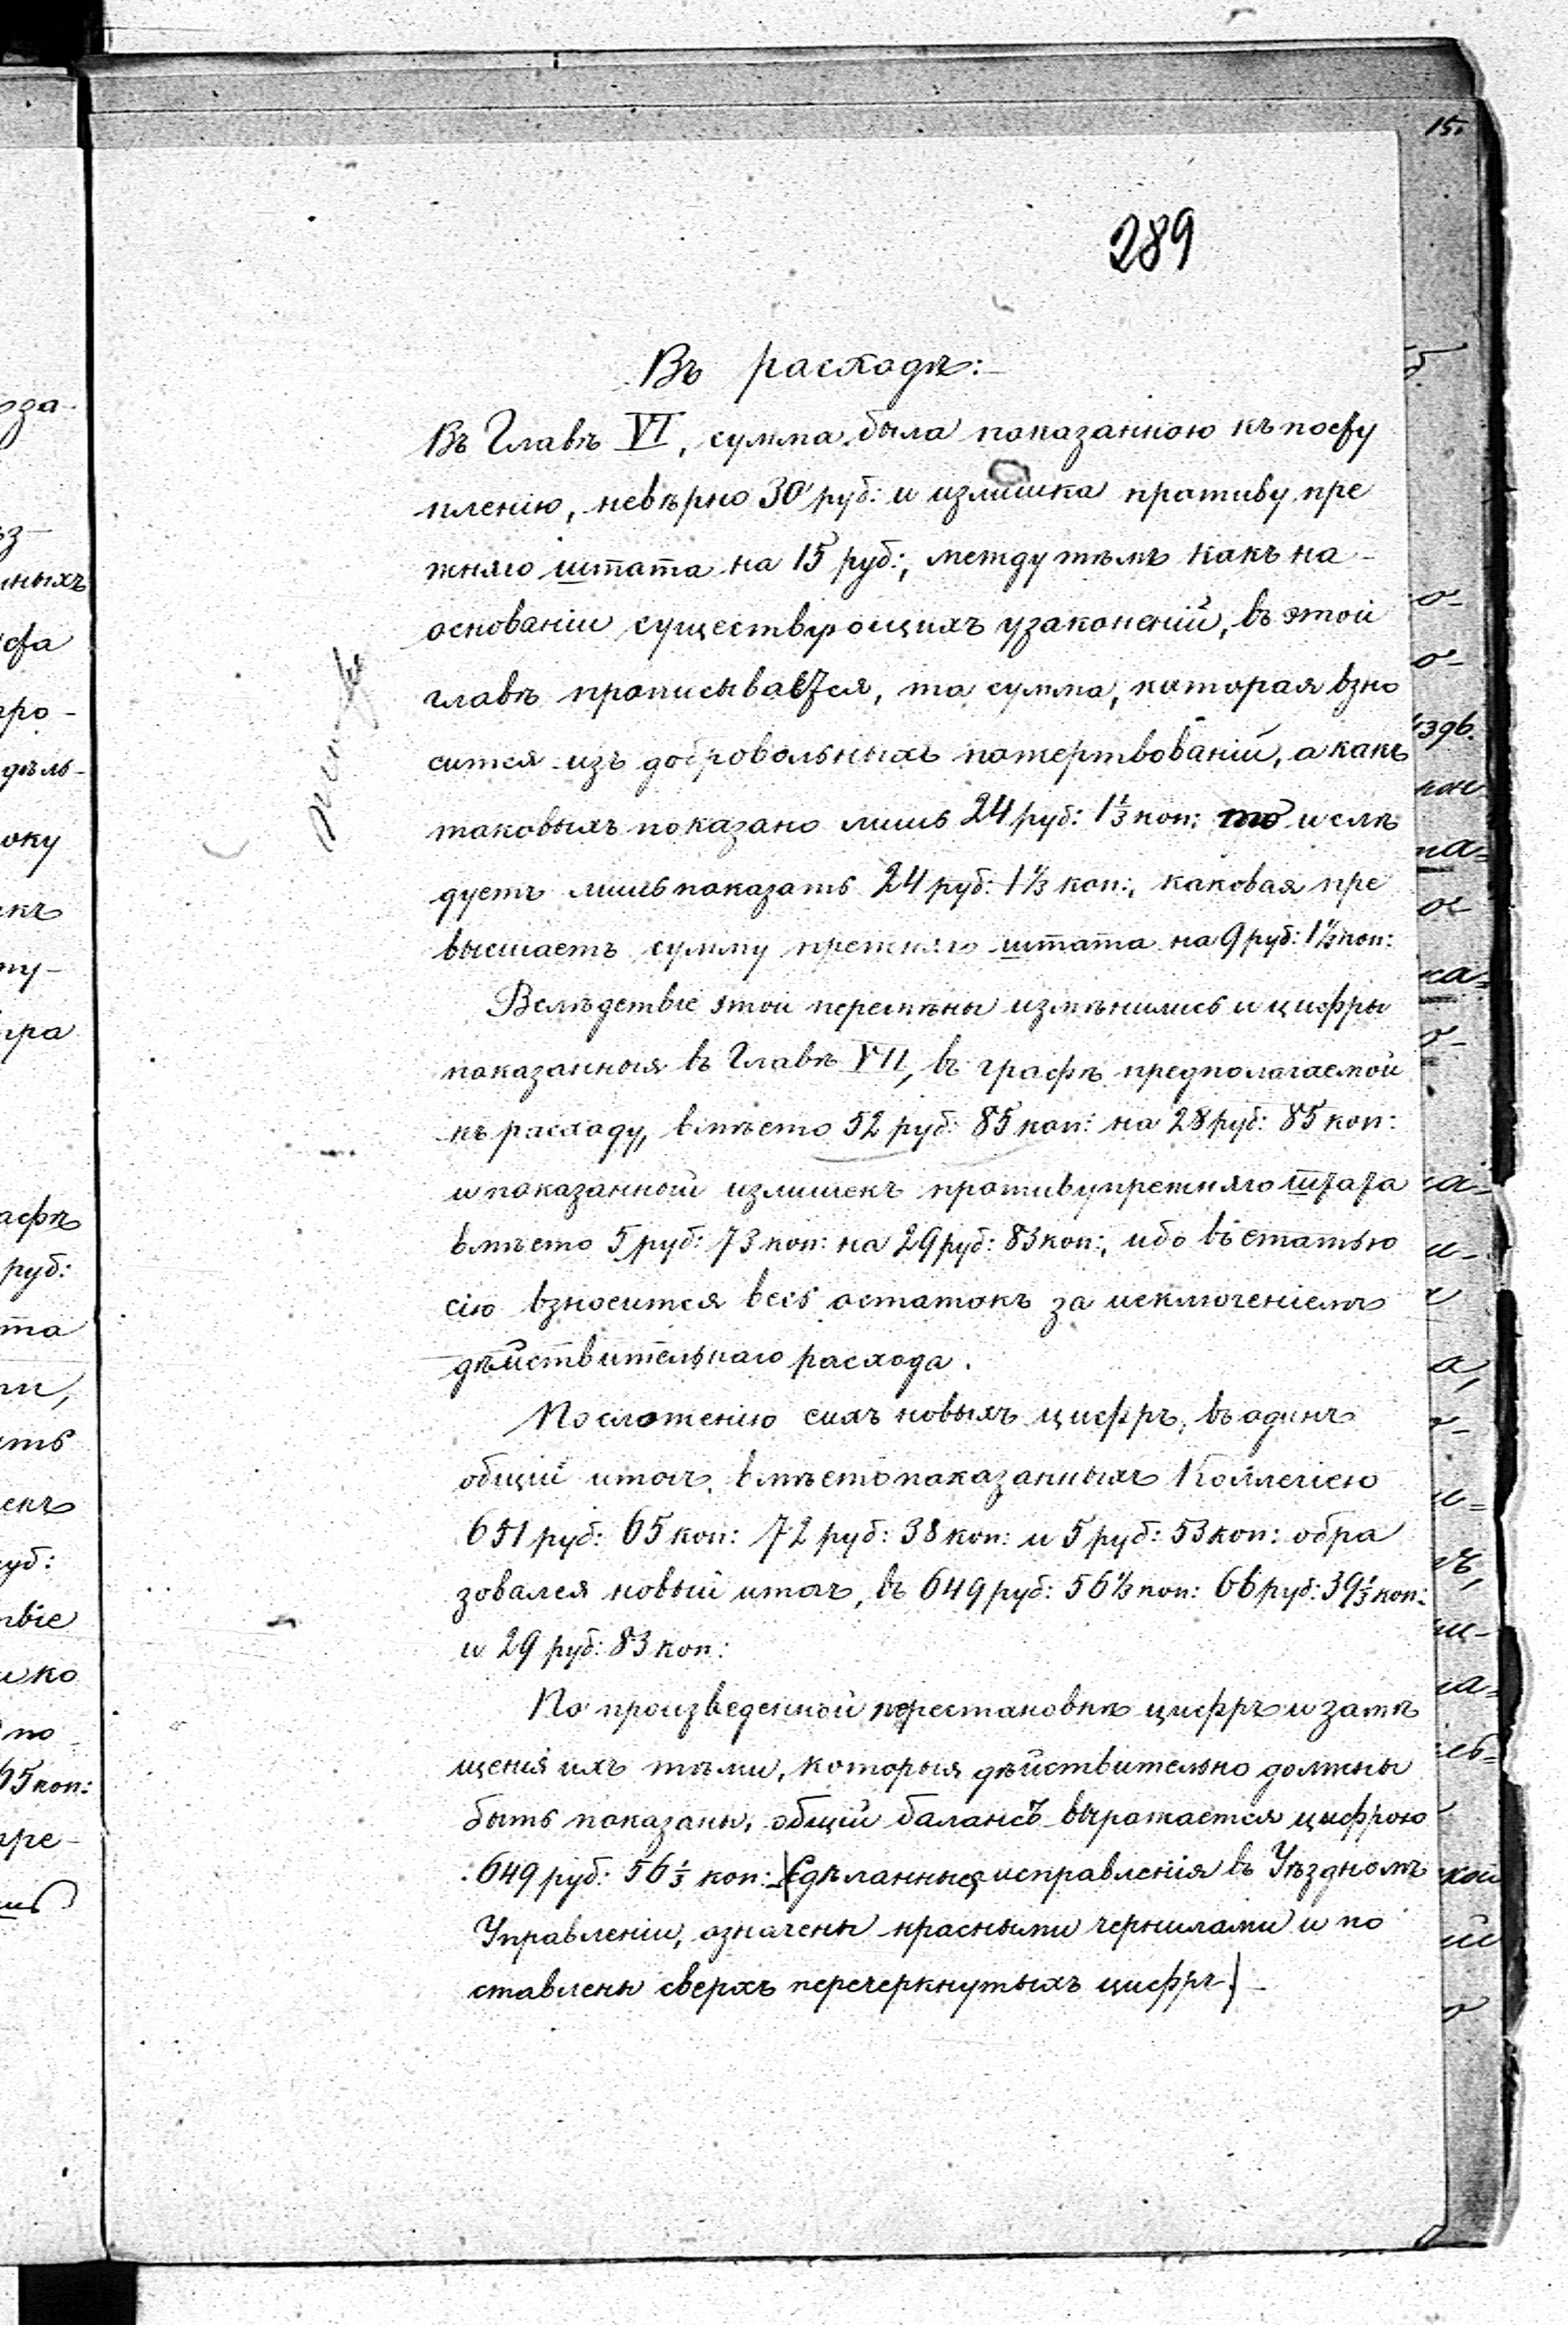 15.
289
Въ расходѣ:
Въ Главѣ VI, сумма была показанною къ посту
пленію, невѣрно 30 руб: и излишка противу пре
жняго штата на 15 руб:, между тѣмъ какъ на
основаніи существующихъ узаконеній, въ этой
главѣ прописывается, та сумма, которая взно
сится изъ добровольныхъ пожертвованій, а какъ
таковыхъ показано лишь 24 руб: 1⅓ коп: то и слѣ
дуетъ лишь показать 24 руб: 1⅓ коп:, каковая пре
вышаетъ сумму прежняго штата на 9 руб: 1⅓ коп:
Вслѣдствіе этой перемѣны измѣнились и цифры
показанныя въ Главѣ VII, въ графѣ предполагаемой
къ расходу, вмѣсто 52 руб: 85 коп: на 28 руб: 85 коп:
и показанной излишекъ противу прежняго штата
вмѣсто 5 руб: 73 коп: на 29 руб: 83 коп:, ибо въ статью
сію взносится весь остатокъ за исключеніемъ
дѣйствительнаго расхода.
По сложенію сихъ новыхъ цифръ, въ одинъ
общій итогъ, вмѣсто показанныхъ Коллегіею
651 руб: 65 коп: 72 руб: 38 коп: и 5 руб: 53 коп: обра
зовался новый итогъ, въ 649 руб: 56⅓ коп: 66 руб: 39⅓ коп:
и 29 руб: 83 коп:
По произведенной перестановкѣ цифръ и замѣ
щенія ихъ тѣми, которыя дѣйствительно должны
быть показаны, общій балансъ выражается цыфрою
649 руб: 56⅓ коп: (Сдѣланныя исправленія въ Уѣздномъ
Управленіи, означены красными чернилами и по
ставлены сверхъ перечеркнутыхъ цифръ)